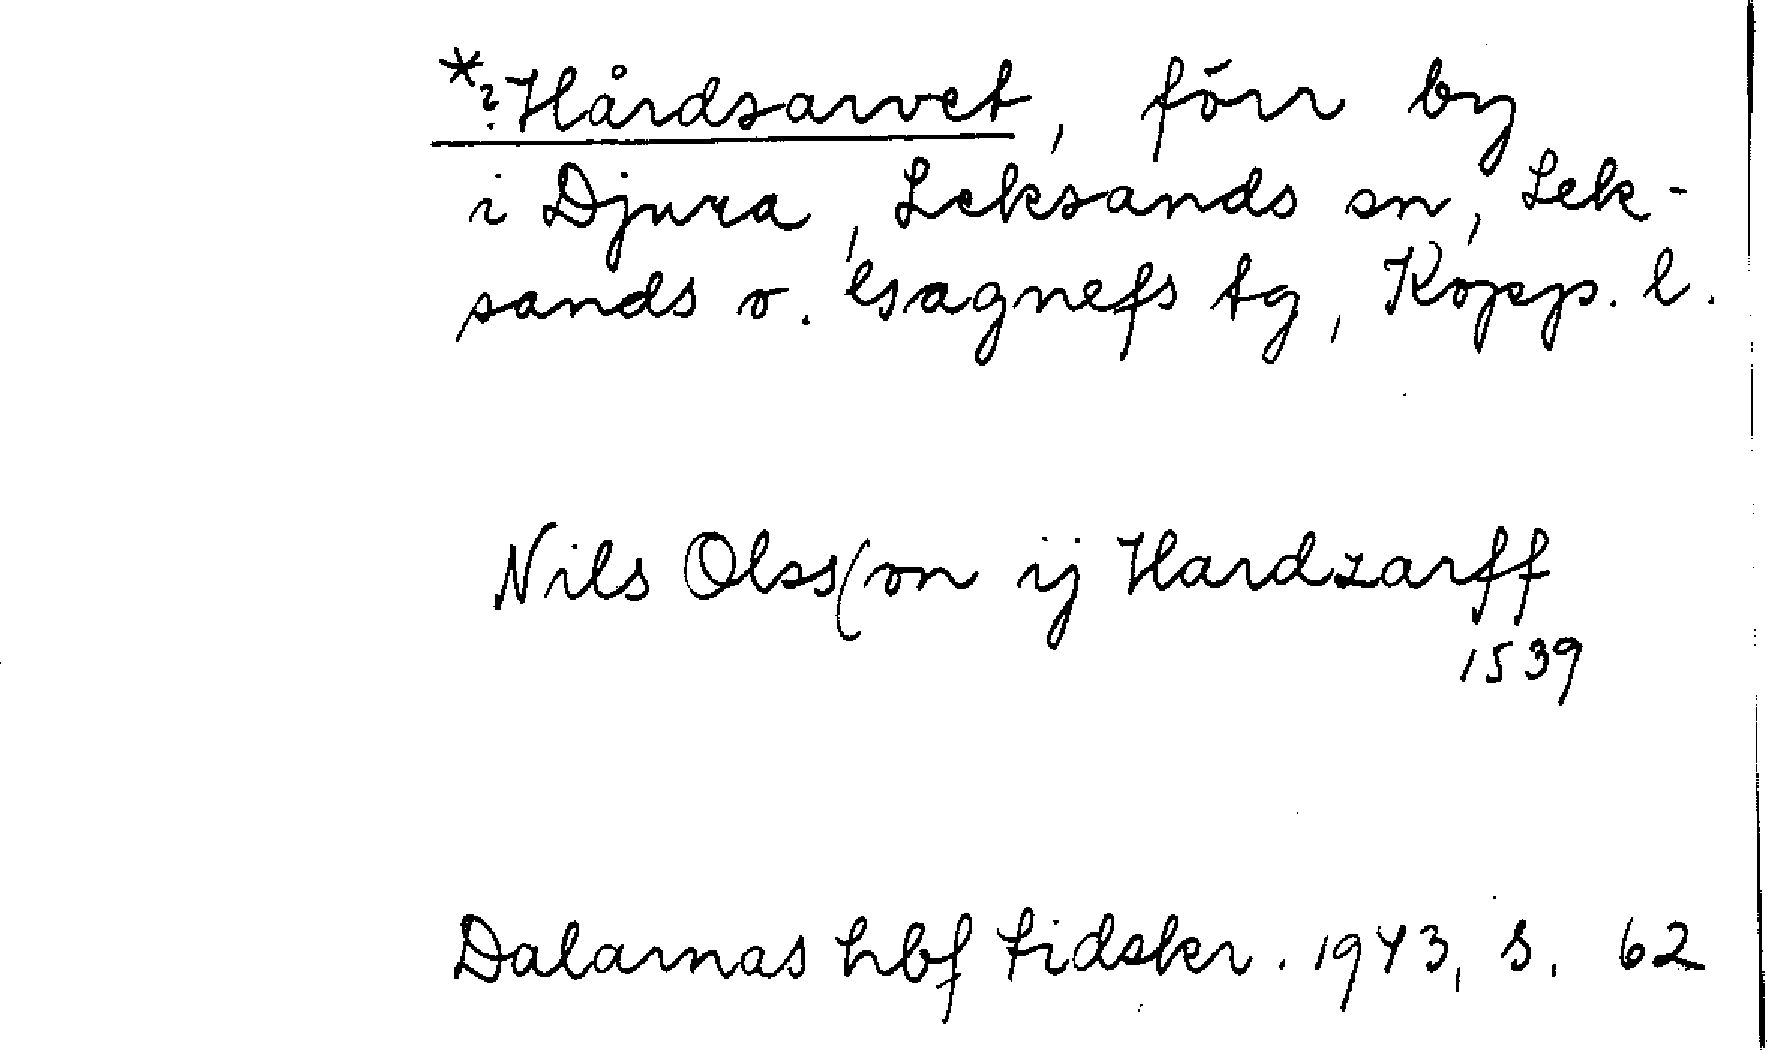 *?Hårdsarvet, förr by
i Djura, Leksands sn, Lek-
sands o. Gagnefs tg, Kopp. l.
Nils Olss(on ij Hardzarff
1539
Dalarnas hbf tidskr. 1943, s. 62